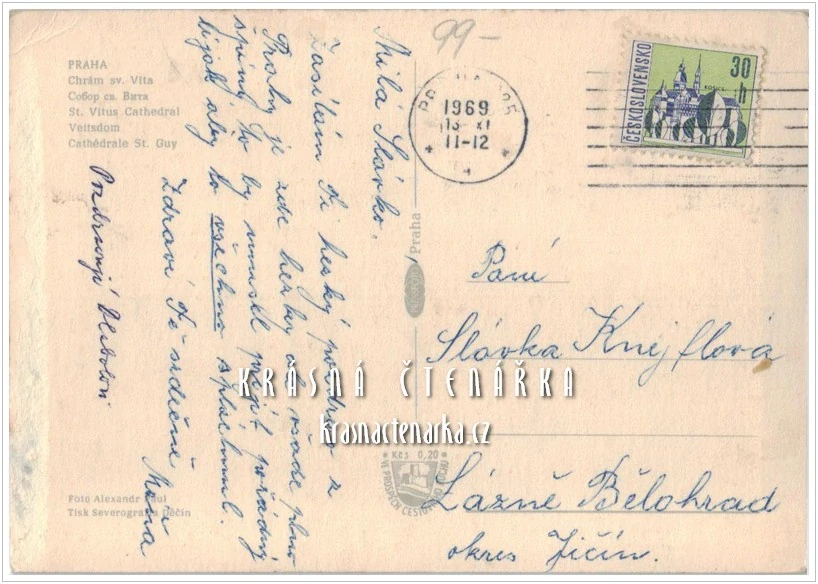 99-
PRAHA
Chrám sv. Víta
Собор св. Вита
St. Vitus Cathedral
Veitsdom
Cathédrale St. Guy
Milá Slávko.
Zasílám Ti hezký pozdrav z
Prahy je zde hezky všade plno
špíny, to by musel přijít pořádný
liják aby to všechno spláchnul.
Zdraví Tě srdečně
Máňa
Pozdravují
Foto Alexandr Paul
Tisk Severografia Děčín
PRAHA
1969
13 XI
11-12
ČESKOSLOVENSKO
30
h
Praha
Paní
Slávka Knejflová
Lázně Bělohrad
okres Jičín.
KRÁSNÁ ČTENÁŘKA
krasnactenarka.cz
Kčs 0,20
VE PROSPĚCH CESTOVNÍHO RUCHU